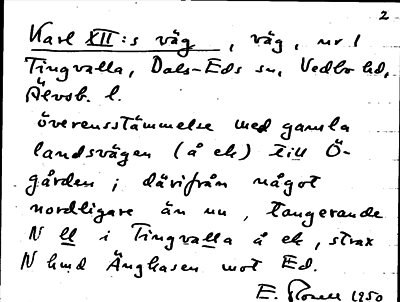 2
Karl XII:s väg, väg, nr 1
Tingvalla, Dals-Eds sn, Vedbo hd,
Älvsb. l.
överensstämmelse med gamla
landsvägen (å ek) till Ö-
gården i därifrån något
nordligare än nu, tangerande
N ll i Tingvalla å ek, strax
N hmd Änghasen mot Ed.
E. 1950